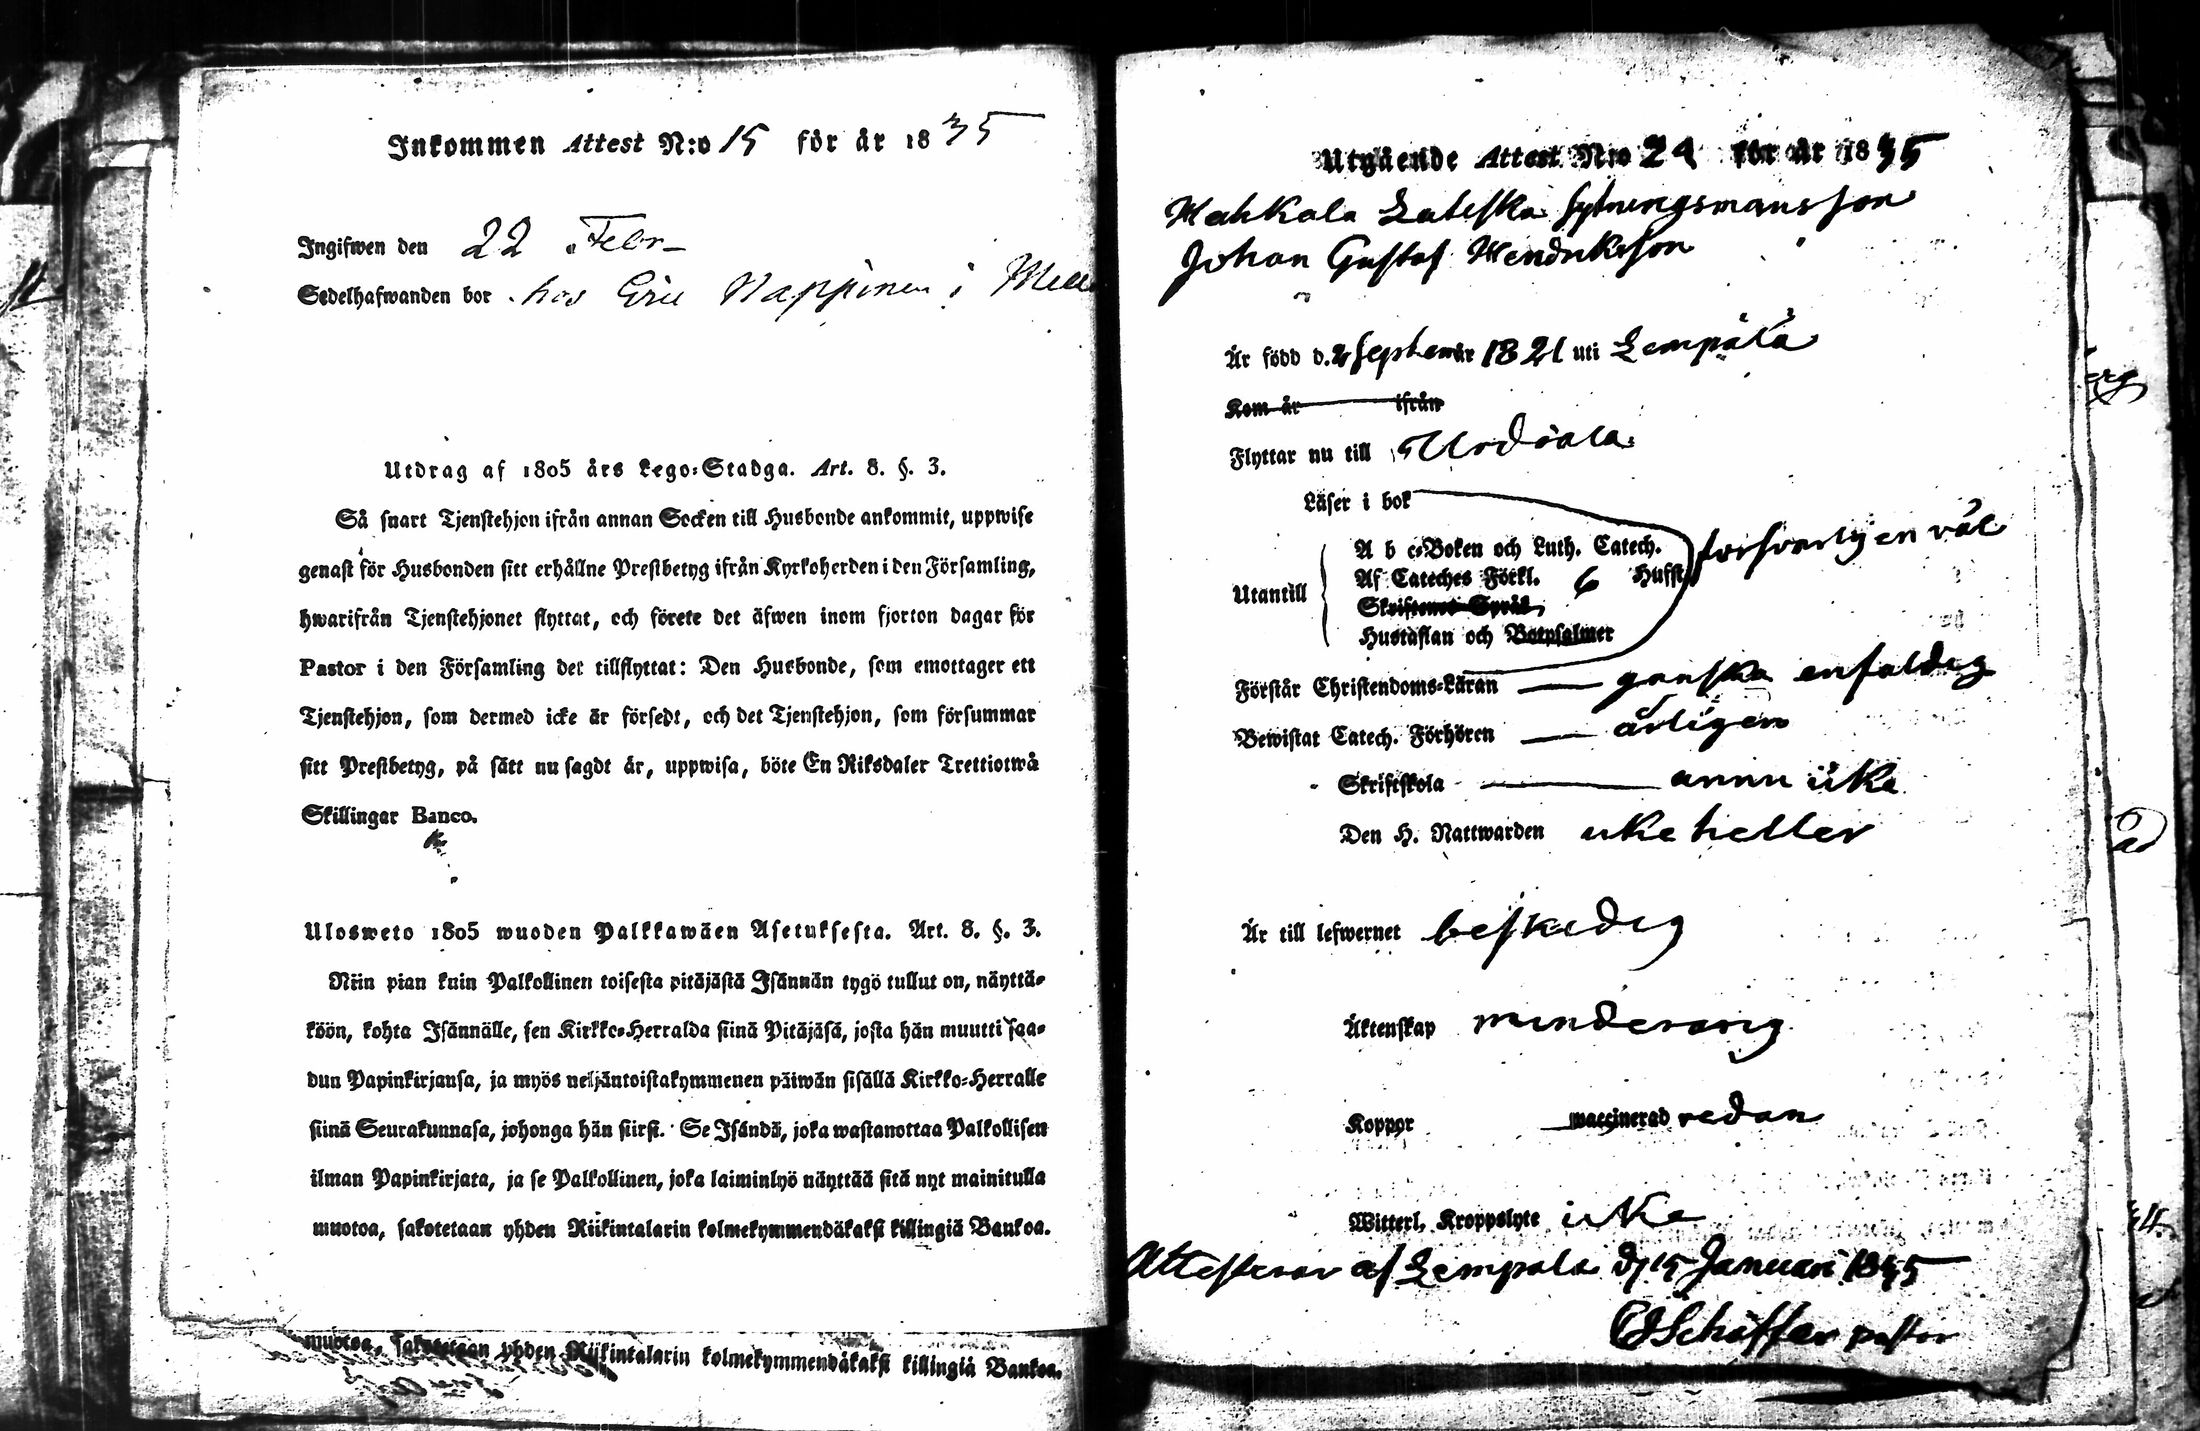 Inkommen Attest N:o 15 för år 1835
Ingifwen den 22 Febr
Sedelhafwanden bor hos Eric Nappinen i
Utdrag af 1805 års Lego-Stadga. Art. 8. §. 3.
Så snart Tjenstehjon ifrån annan Socken till Husbonde ankommit, uppwise
genast för Husbonden sitt erhållne Prestbetyg ifrån Kyrkoherden i den Församling,
hwarifrån Tjenstehjonet flyttat, och förete det äfwen inom fjorton dagar för
Pastor i den Församling det tillflyttat: Den Husbonde, som emottager ett
Tjenstehjon, som dermed icke är försedt, och det Tjenstehjon, som försummar
sitt Prestbetyg, på sätt nu sagdt är, uppwisa, böte En Riksdaler Trettiotwå
Skillingar Banco.
Ulosweto 1805 wuoden Palkkawäen Asetuksesta. Art. 8. §. 3.
Niin pian kuin Palkollinen toisesta pitäjästä Isännän tygö tullut on, näyttä-
köön, kohta Isännälle, sen Kirkko-Herralda siinä Pitäjäsä, josta hän muutti saa-
dun Papinkirjansa, ja myös neljäntoistakymmenen päiwän sisällä Kirkko-Herralle
siinä Seurakunnasa, johonga hän siirsi. Se Isändä, joka wastanottaa Palkollisen
ilman Papinkirjata, ja se Palkollinen, joka laiminlyö näyttää sitä nyt mainitulla
muotoa, sakotetaan yhden Riikintalarin kolmekymmendäkaksi killingiä Bankoa.
muotoa, sakotetaan yhden Riikintalarin kolmekymmendäkaksi killingiä Bankoa.
Utgående Attest N:o 24 för år 1835
Sytningsmansson
Johan Gustaf Hendriksson
Är född d. 2 September 1821 uti Lempälä
Kom år ifrån
Flyttar nu till Urdiala
Läser i bok
Utantill
A b c-Boken och Luth. Catech.
Af Cateches Förkl. 6 Hufst.
Skriftenes Språk
Hustaflan och Botpsalmer
försvarligen väl
Förstår Christendoms-Läran ganska enfaldig
Bewistat Catech. Förhören årligen
Skriftskola ännu icke
Den H. Nattwarden icke heller
Är till lefwernet beskedlig
Äktenskap minderårig
Koppor waccinerad redan
Witterl. Kroppslyte icke
Attesterar af Lempälä d. 15 Januari 1835
CJ Schäffer pastor